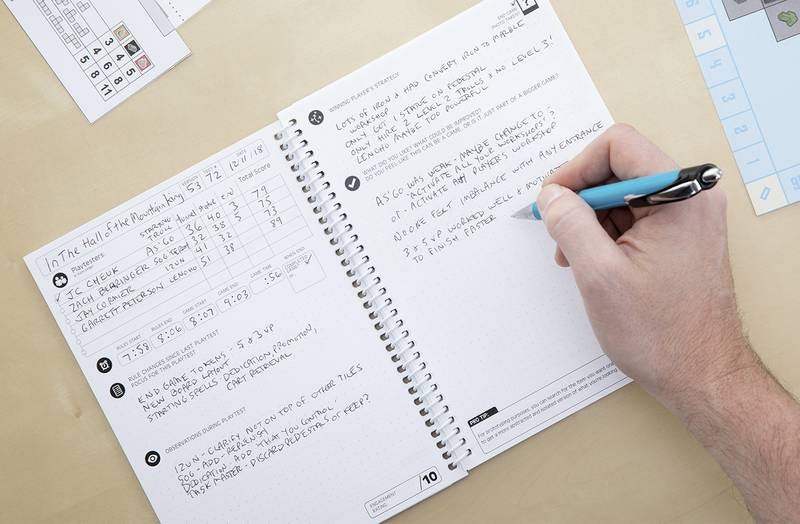 In The Hall of the Mountain King
VERSION
53
72
DATE
12/11/18
Playtesters:
STARTING TROLL
Tunnel
END
Total Score
JC CHEUK
AS'GO
36
40
3
79
ZACH BERRINGER
SOG
32
38
5
75
JAY CORMIER
IZUN
32
38
73
GARRETT PETERSON
LENCHO
51
38
89
RULES START
7:58
RULES END
8:06
GAME START
8:07
GAME END
9:03
GAME TIME
:56
RULE CHANGES SINCE LAST PLAYTEST
FOCUS FOR THIS PLAYTEST
END GAME TOKENS - 5 & 3 VP
NEW BOARD LAYOUT
STARTING SPELLS DEDICATION, PROMOTION,
CART RETRIEVAL
OBSERVATIONS DURING PLAYTEST
IZUN - CLARIFY NOT ON TOP OF OTHER TILES
SOG - ADD
DEDICATION ADD THAT YOU CONTROL
TASK MASTER - DISCARD PEDESTALS OR KEEP?
ENGAGEMENT
RATING:
/10
END GAME
PHOTO TAKEN?
?
WINNING PLAYER'S STRATEGY
LOTS OF IRON & HAD CONVERT IRON TO MARBLE
WORKSHOP
ONLY GET 1 STATUE ON PEDESTAL
ONLY HIRE 2 LEVEL 2 TROLLS & NO LEVEL 3!
LENCHO MAYBE TOO POWERFUL
WHAT DID YOU LIKE? WHAT COULD BE IMPROVED?
DO YOU FEEL LIKE THIS CAN BE A GAME, OR IS IT JUST PART OF A BIGGER GAME?
AS'GO WAS WEAK - MAYBE CHANGE TO:
- ACTIVATE ALL YOUR WORKSHOPS?
or - ACTIVATE PLAYER'S WORKSHOP
NO ONE FELT IMBALANCE WITH ANY ENTRANCE
3 & 5 VP WORKED WELL &
TO FINISH FASTER
PRO TIP:
For prototyping purposes, you can search for the item you want
to get a more abstracted and isolated version of what you're looking
4 3
4 4
5 8
8 11
5
4
3
2
1
0